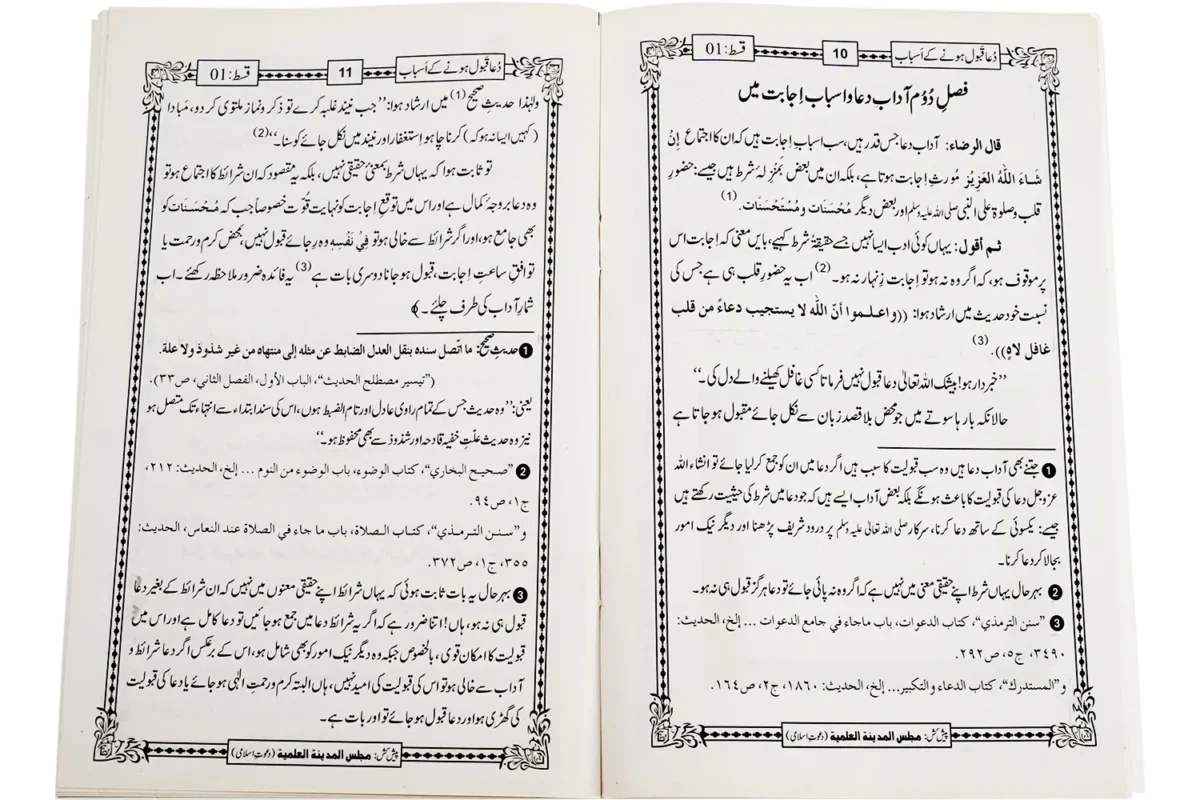 دُعا قبول ہونے کے اَسباب 10 قسط: 01
فصلِ دُوُم آداب دعا و اسباب اِجابت میں
قال الرضاء: آداب دعا جس قدر ہیں، سب اسباب اِجابت ہیں کہ ان کا اجتماع إِنْ
شَاءَ اللهُ العَزِيْز مُورثِ اِجابت ہوتا ہے، بلکہ ان میں بعض بَمَنْزِلہٗ شرط ہیں جیسے: حضورِ
قلب و صلوۃ علی النبی صلی اللہ علیہ وسلم اور بعض دیگر مُحْسَنَات و مُسْتَحْسَنَات. (1)
ثم أقول: یہاں کوئی ادب ایسا نہیں جسے حقیقۃً شرط کہیے، بایں معنی کہ اِجابت اس
پر موقوف ہو، کہ اگر وہ نہ ہو تو اِجابت زنہار نہ ہو۔(2) اب یہ حضورِ قلب ہی ہے جس کی
نسبت خود حدیث میں ارشاد ہوا: ((واعلموا أنّ الله لا يستجيب دعاءً من قلب
غافل لاهٍ)). (3)
”خبردار ہو! بیشک اللہ تعالیٰ دعا قبول نہیں فرماتا کسی غافل کھیلنے والے دل کی۔“
حالانکہ بارہا سوتے میں جو محض بلا قصد زبان سے نکل جائے مقبول ہو جاتا ہے
❶ جتنے بھی آداب دعا ہیں وہ سب قبولیت کا سبب ہیں اگر دعا میں ان کو جمع کر لیا جائے تو انشاء اللہ
عزوجل دعا کی قبولیت کا باعث ہونگے بلکہ بعض آداب ایسے ہیں کہ جو دعا میں شرط کی حیثیت رکھتے ہیں
جیسے: یکسوئی کے ساتھ دعا کرنا، سرکار صلی اللہ تعالی علیہ وسلم پر درود شریف پڑھنا اور دیگر نیک امور
بجالا کر دعا کرنا۔
❷ بہر حال یہاں شرط اپنے حقیقی معنی میں نہیں ہے کہ اگر وہ نہ پائی جائے تو دعا ہرگز قبول ہی نہ ہو۔
❸ ”سنن الترمذي“، كتاب الدعوات، باب ماجاء في جامع الدعوات ... إلخ، الحديث:
٣٤٩٠، ج٥، ص٢٩٢.
و”المستدرك“، كتاب الدعاء والتكبير... إلخ، الحديث: ١٨٦٠، ج٢، ص١٦٤.
پیش کش: مجلس المدينة العلمية (دعوتِ اسلامی)
دُعا قبول ہونے کے اَسباب 11 قسط: 01
ولہٰذا حدیثِ صحیح (1) میں ارشاد ہوا: ”جب نیند غلبہ کرے تو ذکر و نماز ملتوی کر دو، مَبادا
(کہیں ایسا نہ ہو کہ) کرنا چاہو اِستغفار اور نیند میں نکل جائے کوسنا۔“ (2)
تو ثابت ہوا کہ یہاں شرط بمعنیٔ حقیقی نہیں، بلکہ یہ مقصود کہ ان شرائط کا اجتماع ہو تو
وہ دعا بروجۂ کمال ہے اور اس میں توقعِ اِجابت کو نہایت قُوّت خصوصاً جب کہ مُحْسَنَات کو
بھی جامع ہو، اور اگر شرائط سے خالی ہو تو فِيْ نَفْسِہٖ وہ رجائے قبول نہیں، بمحض کرم و رحمت یا
توافقِ ساعتِ اِجابت، قبول ہو جانا دوسری بات ہے (3) یہ فائدہ ضرور ملاحظہ رکھئے۔ اب
شمارِ آداب کی طرف چلئے۔ ﴾
❶ حدیثِ صحیح: ما اتّصل سنده بنقل العدل الضابط عن مثله إلى منتهاه من غير شذوذ ولا علة.
(”تيسير مصطلح الحديث“، الباب الأول، الفصل الثاني، ص٣٣).
یعنی: ”وہ حدیث جس کے تمام راوی عادل اور تام الضبط ہوں، اس کی سند ابتداء سے انتہاء تک متصل ہو
نیز وہ حدیث علّتِ خفیہ قادحہ اور شذوذ سے بھی محفوظ ہو۔“
❷ ”صحيح البخاري“، كتاب الوضوء، باب الوضوء من النوم ... إلخ، الحديث: ٢١٢،
ج١، ص٩٤.
و”سنن الترمذي“، كتاب الصلاة، باب ما جاء في الصلاة عند النعاس، الحديث:
٣٥٥، ج١، ص٣٧٢.
❸ بہر حال یہ بات ثابت ہوئی کہ یہاں شرائط اپنے حقیقی معنوں میں نہیں کہ ان شرائط کے بغیر دعا
قبول ہی نہ ہو، ہاں! اتنا ضرور ہے کہ اگر یہ شرائط دعا میں جمع ہو جائیں تو دعا کامل ہے اور اس میں
قبولیت کا امکان قوی، بالخصوص جبکہ وہ دیگر نیک امور کو بھی شامل ہو، اس کے برعکس اگر دعا شرائط و
آداب سے خالی ہو تو اس کی قبولیت کی امید نہیں، ہاں البتہ کرم و رحمتِ الٰہی ہو جائے یا دعا کی قبولیت
کی گھڑی ہو اور دعا قبول ہو جائے تو اور بات ہے۔
پیش کش: مجلس المدينة العلمية (دعوتِ اسلامی)